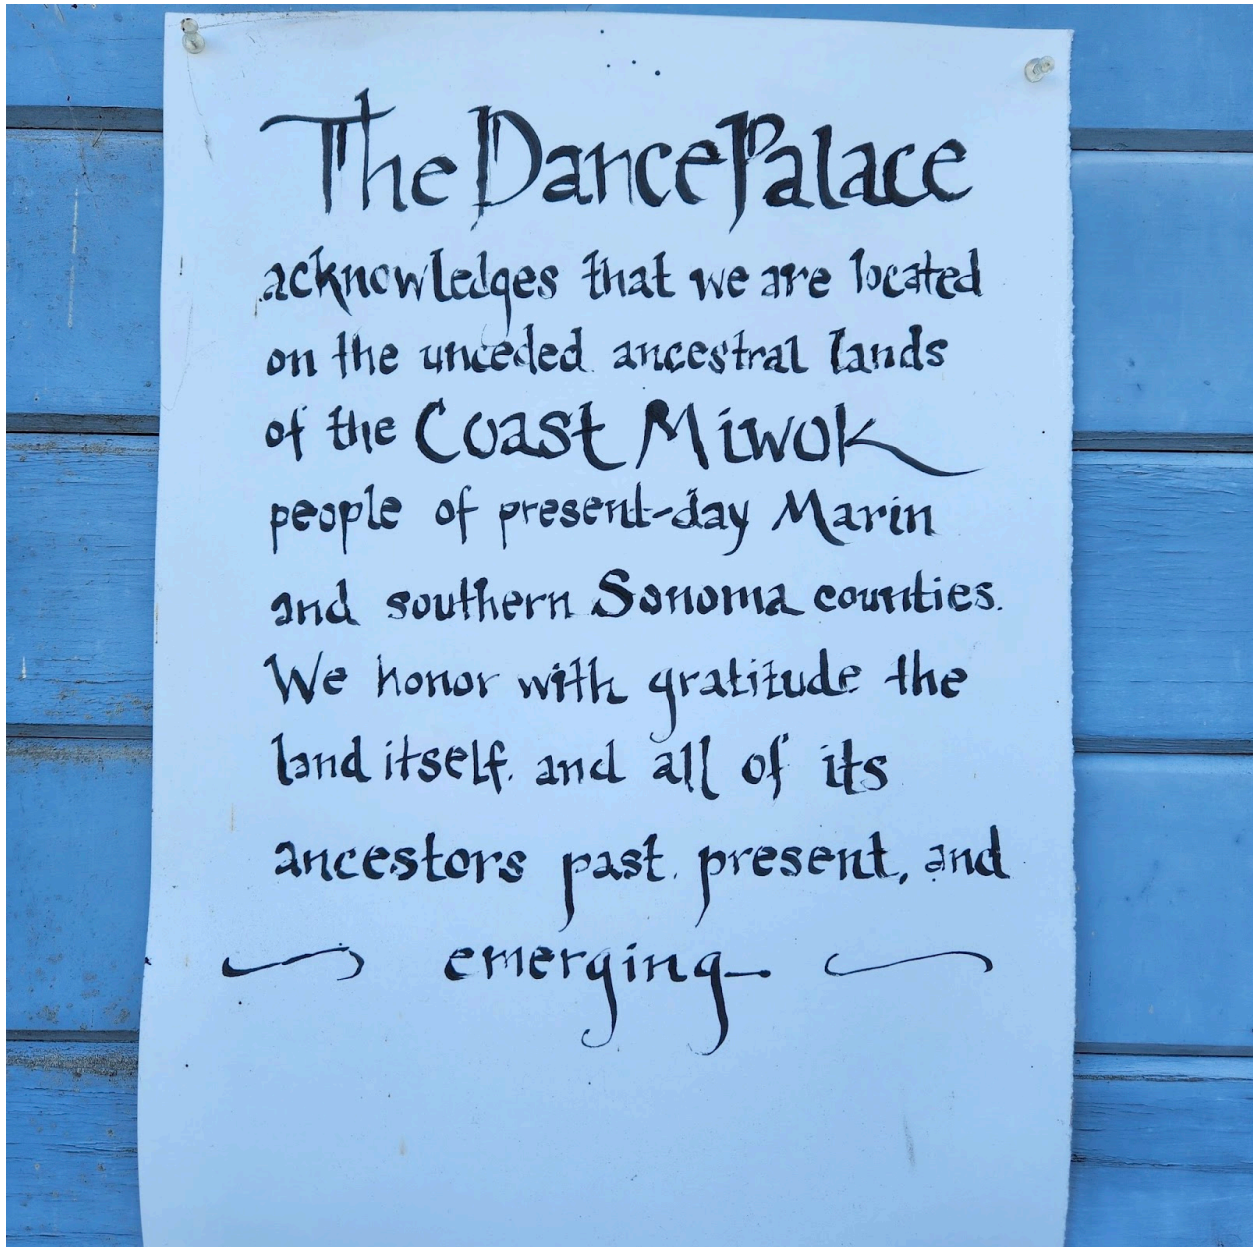 The Dance Palace
acknowledges that we are located
on the unceded ancestral lands
of the Coast Miwok
people of present-day Marin
and southern Sonoma counties.
We honor with gratitude the
land itself, and all of its
ancestors past, present, and
emerging